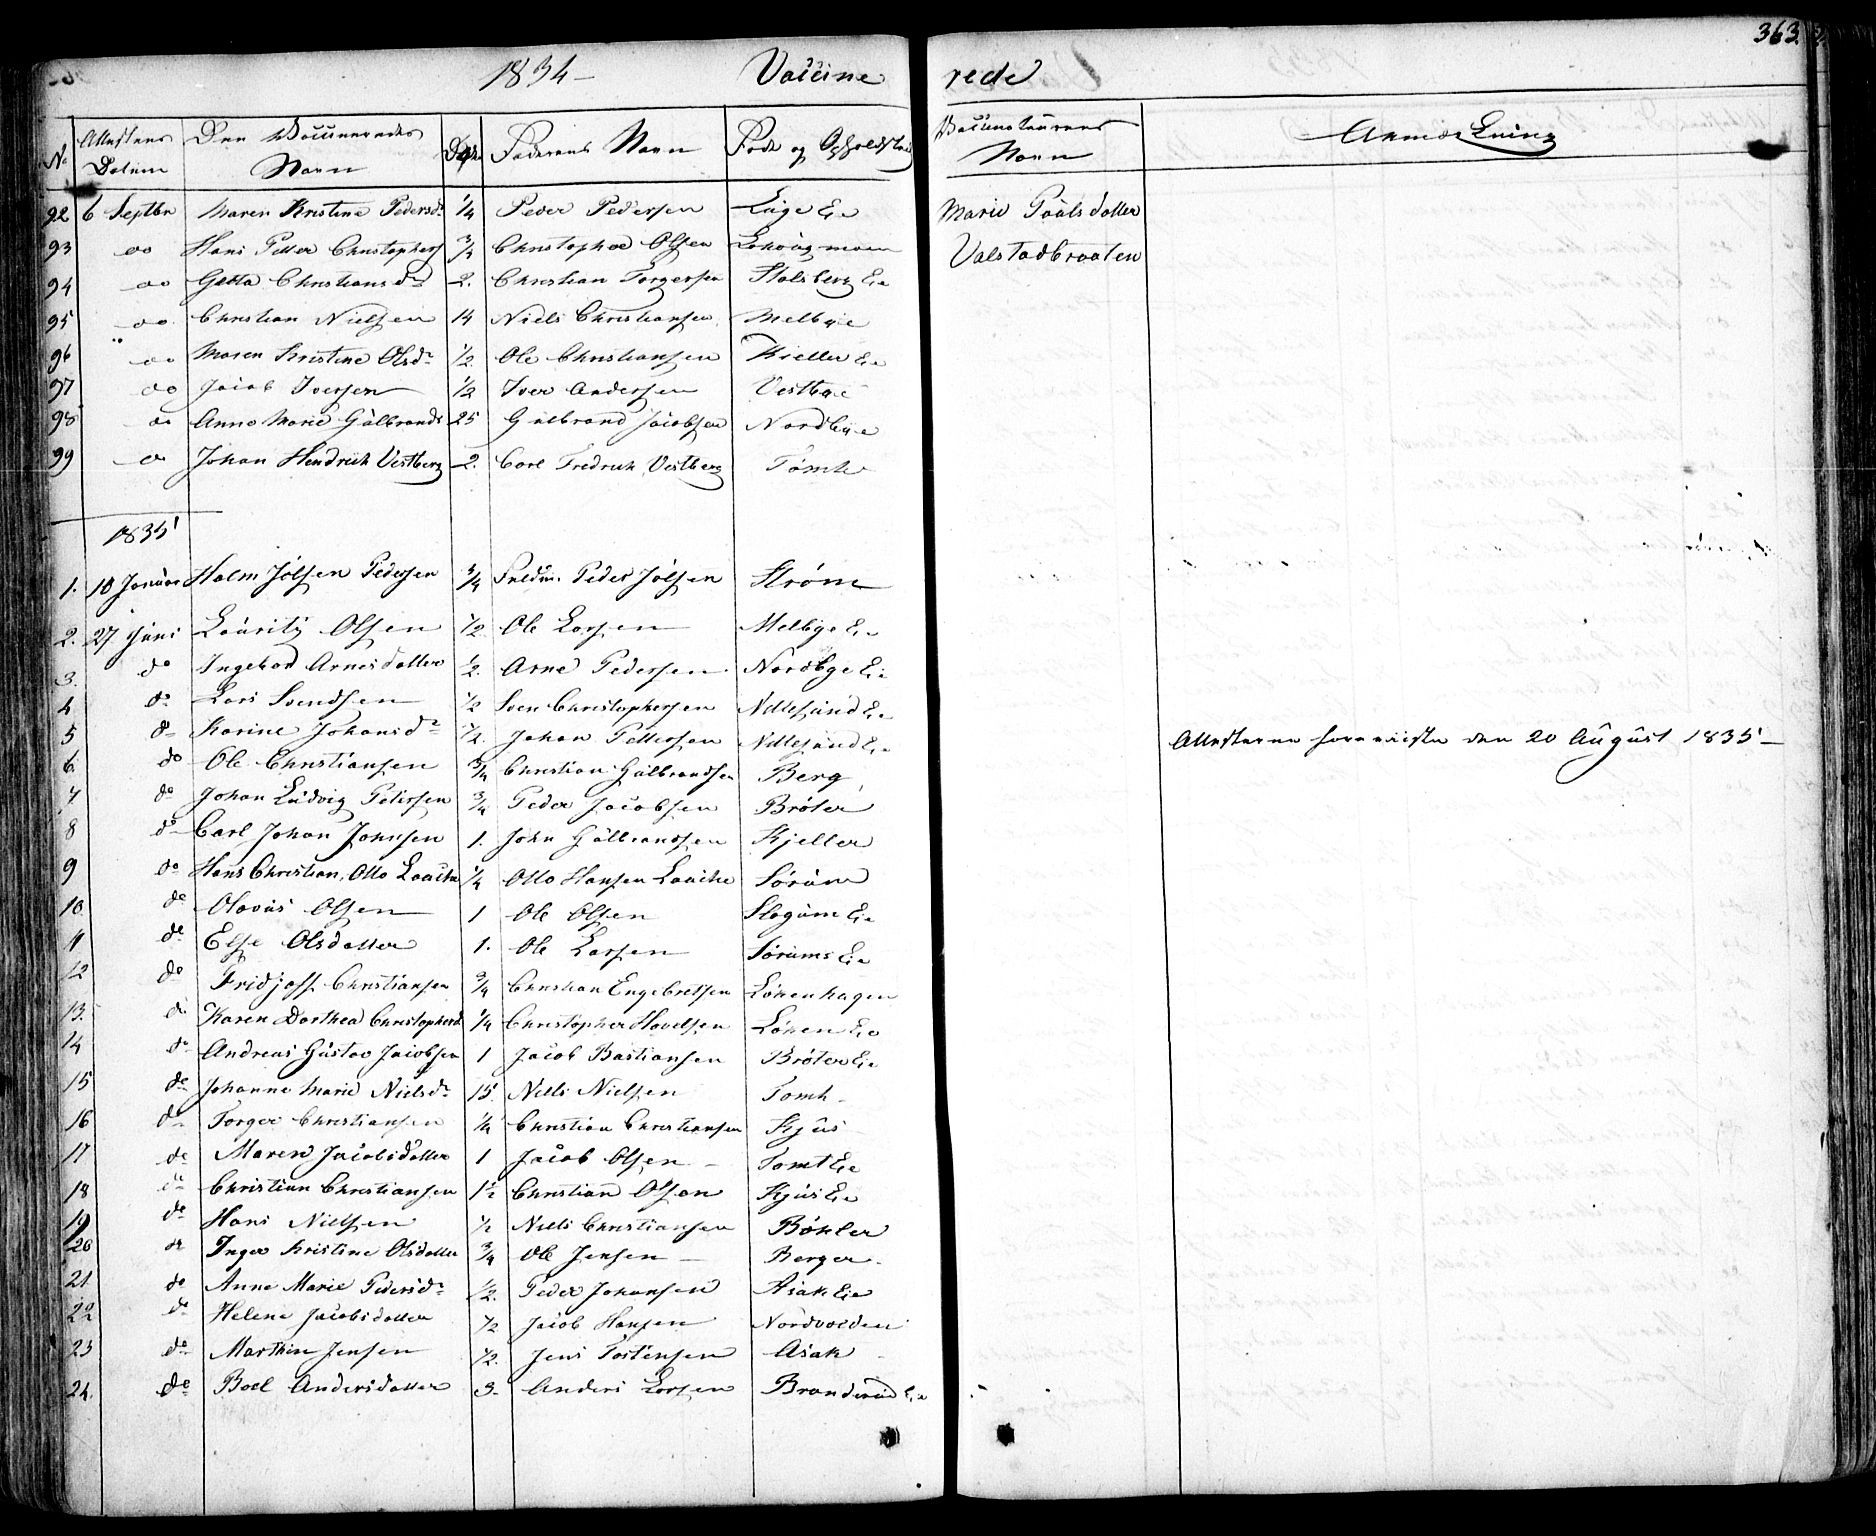 363.
1834 – Vaccine rede
No Attestens Datum Den Vaccineredes Navn Alder Faderens Navn Føde og Opholdsted Vaccinateurens Navn Anmærkning
92 6 Septbr Maren Kristine Pedersdr ¼ Peder Pedersen Eie Marie Paalsdatter
93 do Hans Petter Christophers ¾ Christopher Olsen Valstadbraaten
94 do Christiansdr 2. Christian Torgersen Stalsberg Eie
95 do Christian Nielsen 14 Niels Christiansen Melbye
96 do Maren Kristine Olsdr ½ Ole Christiansen Kieller Eie
97 do Jacob Iversen ½ Iver Andersen Vestbye
98 do Anne Marie Gulbrands 25 Gulbrand Jacobsen Nordbye
99 do Johan Hendrich Vestberg 2. Carl Fredrich Vestberg Tomte
1835
1. 10 Januar Halm Jølsen Pedersen ¾ Peder Jølsen Strøm
2. 27 Juni Lauritz Olsen ½ Ole Larsen Melbye Eie
3. do Ingebor Arnesdatter ½. Arne Pedersen Nordbye Eie
4 do Lars Svendsen ½ Sven Christophersen Nittesund Eie
5 do Karine Johansdr ½. Johan Pettersen Nittesund Eie Attesterne foreviiste den 20 August 1835 –
6 do Ole Christiansen ¾ Christian Gulbrandsen Berg
7 do Johan Ludvig Petersen ¾ Peder Jacobsen Brøter
8 do Carl Johan Johnsen 1. John Gulbrandsen Kjeller
9 do Hans Christian Otto Laache ¼ Otto Hansen Laache Sørum
10 do Olavus Olsen 1 Ole Olsen Slogum Eie
11 do Else Olsdatter 1. Ole Larsen Sørums Eie
12 do Fridjoff Christiansen ¾ Christian Engebretsen Løkenhagen
13. do Karen Dorthea Christophersd ¼ Christopher Hovelsen Løken Eie
14 do Andreas Gustav Jacobsen 1 Jacob Bastiansen Brøter Eie
15 do Johanne Marie Nielsdr 15. Niels Nielsen Tomt
16 do Torger Christiansen ¼ Christian Christiansen Kjus
17 do Maren Jacobsdatter 1 Jacob Olsen – Tomt Eie
18 do Christian Christiansen 1½ Christian Olsen Kjus Eie
19 do Hans Nielsen ½ Niels Christiansen Bøhler
20 do Inger Kristine Olsdatter ¾ Ole Jensen – Berger
21 do Anne Marie Pedersdr ½. Peder Johansen Asak Eie
22 do Helene Jacobsdatter ½ Jacob Hansen Nordvolden
23 do Marthin Jensen ½. Jens Tostensen Asak
24. do Boel Andersdatter 3. Anders Larsen Branderud Eie